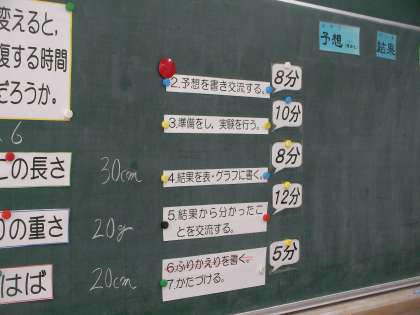 変えると,
復する時間
だろうか.
6
この長さ
30cm
りの重さ
20g
はば
20cm
2.予想を書き交流する。
8分
3.準備をし，実験を行う。
10分
4.結果を表・グラフに書く。
8分
5.結果から分かったこ
とを交流する。
12分
6.ふりかえりを書く。
7.かたづける。
5分
予想
結果